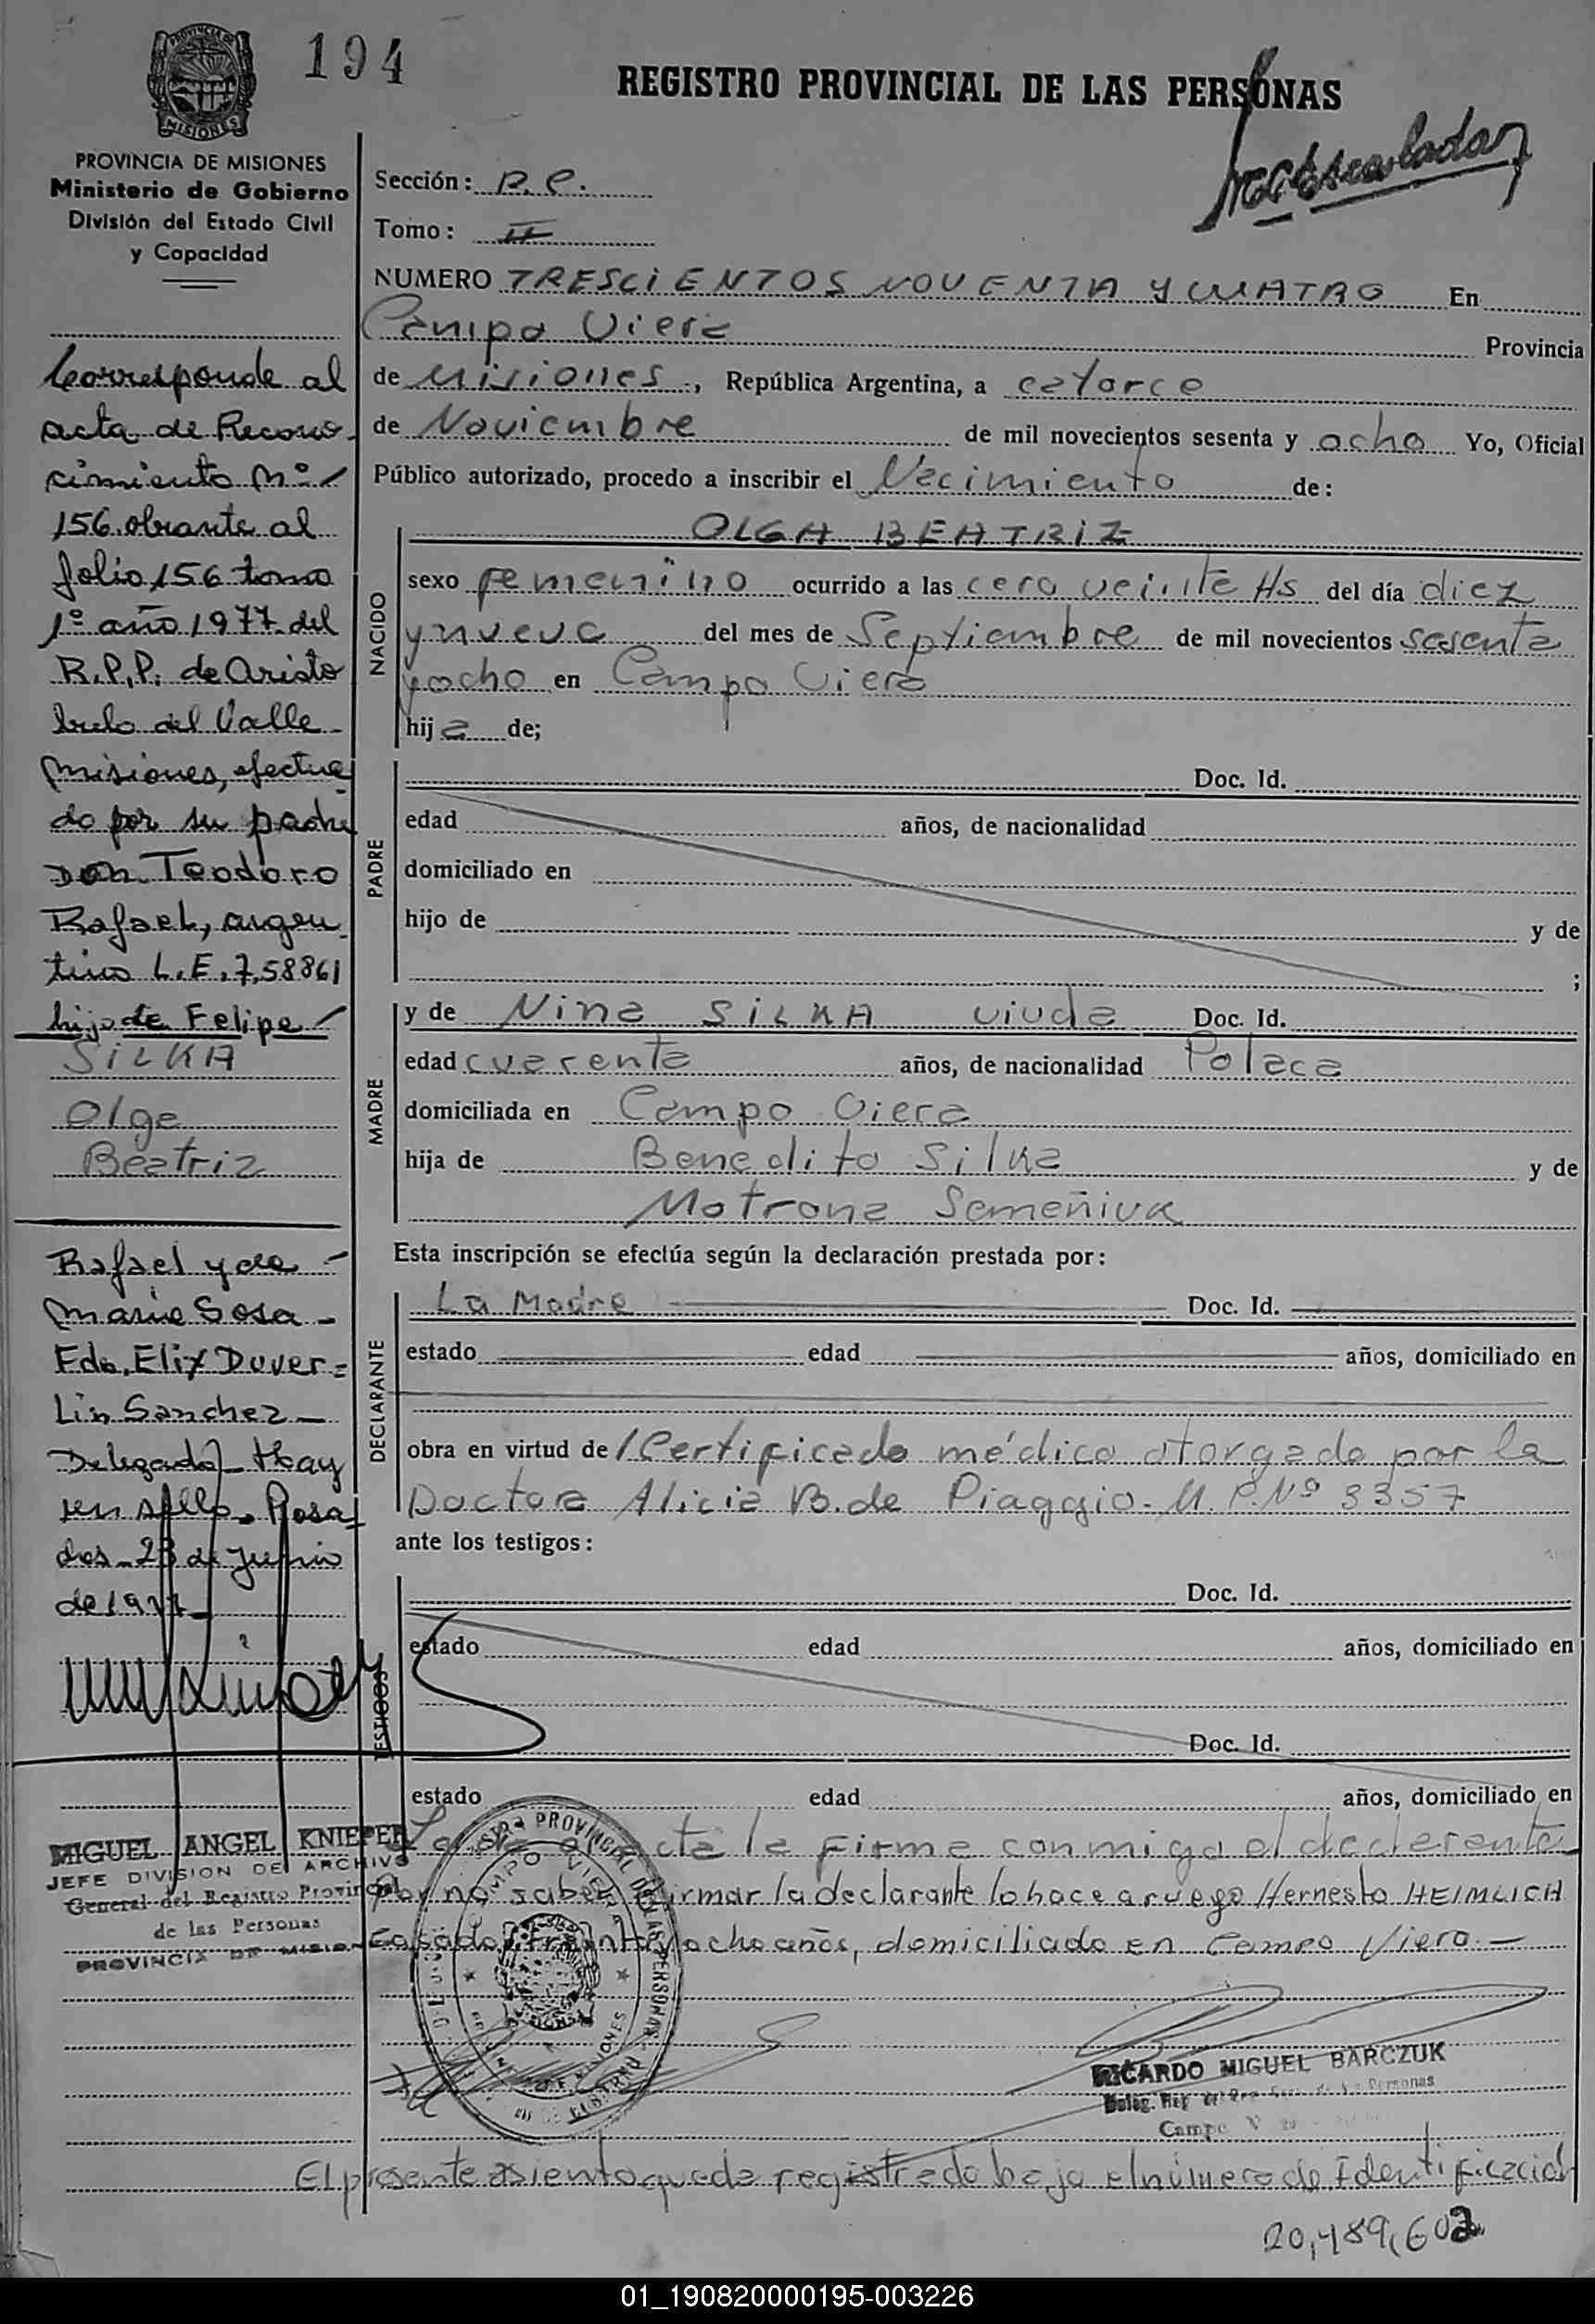 194
REGISTRO PROVINCIAL DE LAS PERSONAS
PROVINCIA DE MISIONES
Ministerio de Gobierno
División del Estado Civil
y Capacidad
Sección: P. C.
Tomo: II
NUMERO TRESCIENTOS NOVENTA Y CUATRO En
Campo Viera Provincia
de Misiones, República Argentina, a catorce
de Noviembre de mil novecientos sesenta y ocho Yo, Oficial
Público autorizado, procedo a inscribir el Nacimiento de:
OLGA BEATRIZ
NACIDO
sexo femenino ocurrido a las cero veinte Hs del día diez
ynueve del mes de Septiembre de mil novecientos sesenta
yocho en Campo Viera
hija de;
PADRE
Doc. Id.
edad años, de nacionalidad
domiciliado en
hijo de y de
;
MADRE
y de Nina SILKA viuda Doc. Id.
edad cuarenta años, de nacionalidad Polaca
domiciliada en Campo Viera
hija de Benedito Silka y de
Motrona Semeñiuk
Esta inscripción se efectúa según la declaración prestada por:
DECLARANTE
La Madre Doc. Id.
estado edad años, domiciliado en
obra en virtud de /Certificado médico otorgado por la
Doctora Alicia B. de Piaggio. M. P. Nº 3357
ante los testigos:
TESTIGOS
Doc. Id.
estado edad años, domiciliado en
Doc. Id.
estado edad años, domiciliado en
acta la firma conmigo el declarante
por no saber firmar la declarante lo hace a ruego Hernesto HEIMLICH
Casado, treinta ocho años, domiciliado en Campo Viera.—
RICARDO MIGUEL BARCZUK
Campo V
El presente asiento queda registrado bajo el número de Identificación
20,489,602
Corresponde al
acta de Recono-
cimiento Nº /
156 obrante al
folio 156 tomo
1º año 1977 del
R.P.P. de Aristo
bulo del Valle
Misiones, efectua
do por su padre
Don Teodoro
Rafael, argen
tino L.E. 7,58861
hijo de Felipe /
SILKA
Olga
Beatriz
Rafael y de -
Maria Sosa -
Fdo. Elix Duver=
Lin Sanchez -
Delegado - Hay
un sello. Posa
das - 23 de Junio
de 1977 -
MIGUEL ANGEL KNIEPER
JEFE DIVISION DE ARCHIVO
General del Registro Provincial
de las Personas
PROVINCIA DE MISIONES
01_190820000195-003226